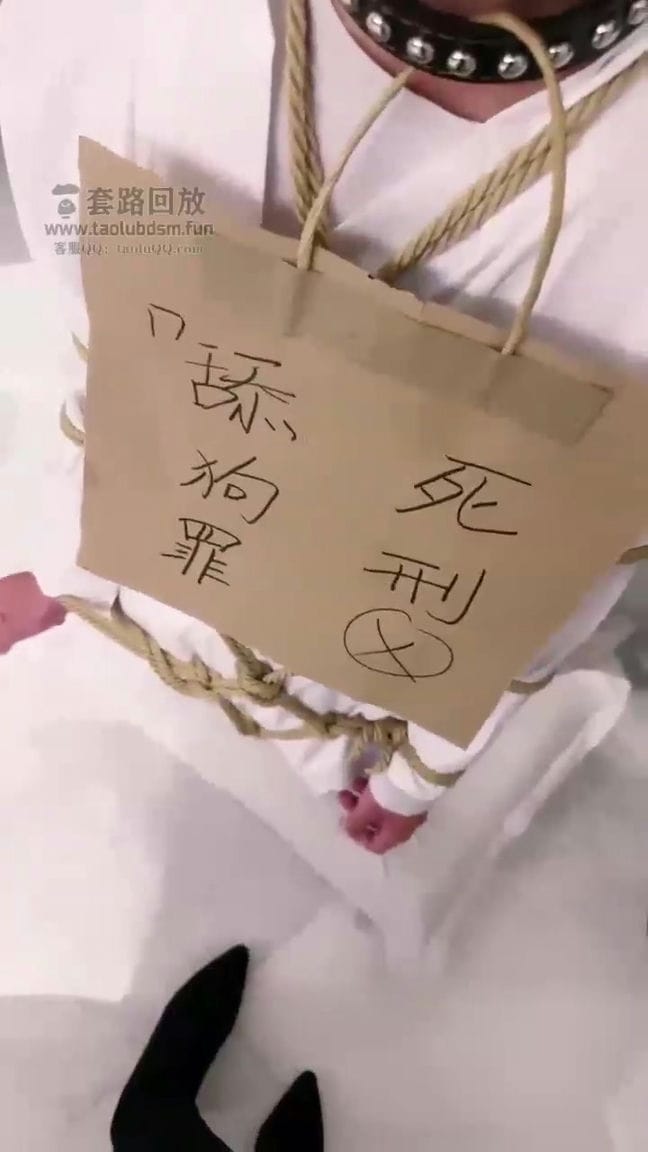 套路回放
www.taolubdsm.fun
客服QQ：taoluQQ.com
「舔狗罪
死刑